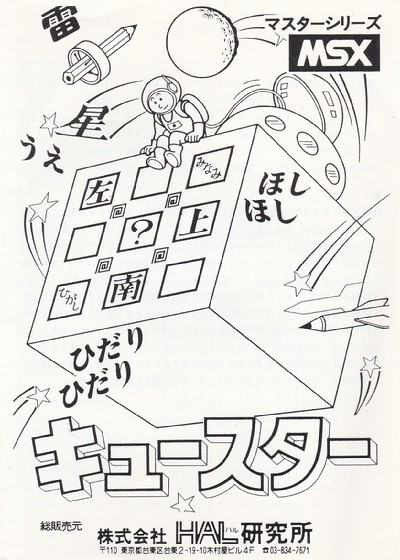 雷
マスターシリーズ
MSX
星
うえ
みなみ
左
ほし
ほし
?
上
ひがし
南
ひだり
ひだり
キュースター
総販売元
株式会社 HAL ハル 研究所
〒110 東京都台東区台東2-19-10木村屋ビル4F ☎03-834-7671